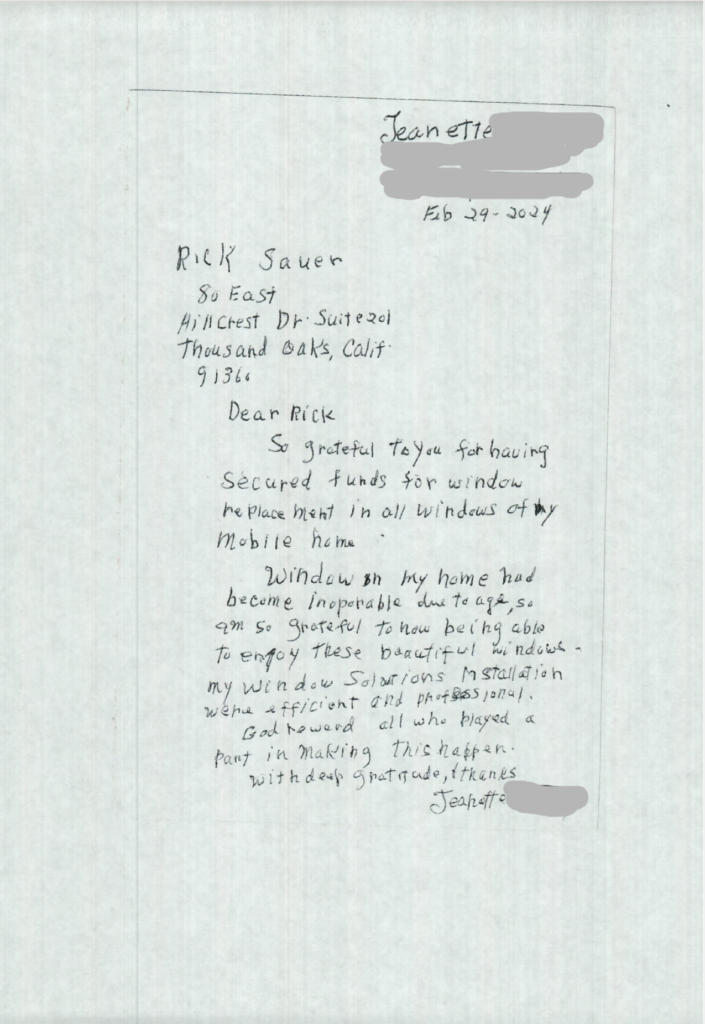 Jeanette
Feb 29-2024
Rick Sauer
80 East
Hillcrest Dr. Suite 201
Thousand Oaks, Calif.
91360
Dear Rick
So grateful to you for having
secured funds for window
replacement in all windows of my
mobile home.
Window in my home had
become inoporable due to age, so
am so grateful to now being able
to enjoy these beautiful windows.
my Window Solutions Installation
were efficient and professional.
God reward all who played a
part in making this happen.
With deep gratitude, & thanks
Jeanette